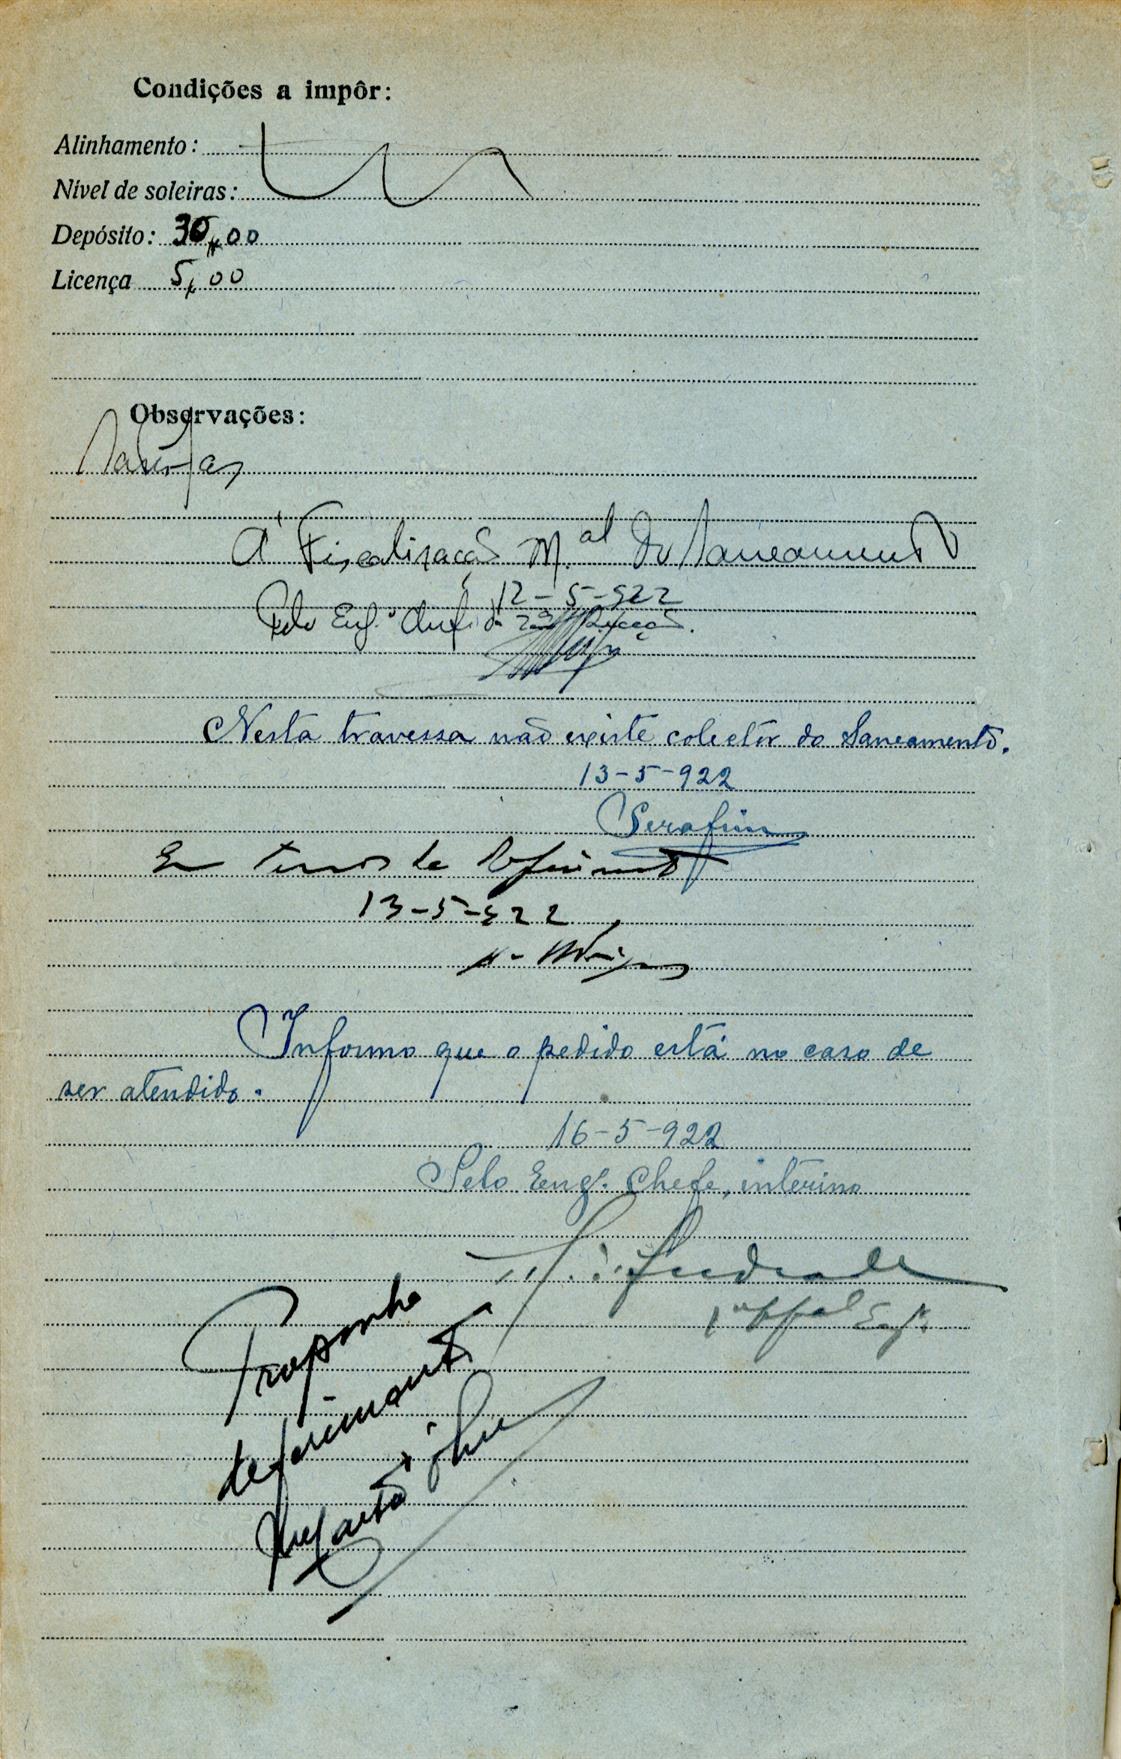 Condições a impôr:
Alinhamento:
Nível de soleiras:
Depósito: 30$00
Licença 5$00
Observações:
Á Fiscalização M.al do Saneamento
12-5-922
Pelo Eng.º Chefe da 2ª Secção.
Nesta travessa não existe colector do Saneamento.
13-5-922
Serafim
Em termos de deferimento
13-5-922
Informo que o pedido está no caso de
ser atendido.
16-5-922
Pelo Engº. Chefe, interino
Andrade
Proponho
deferimento